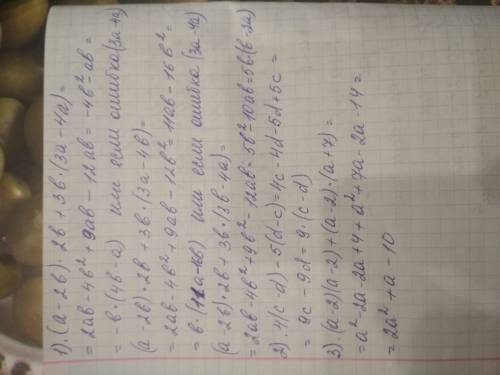 1). (a-2b)·2b+3b·(3a-4a)=
=2ab-4b²+9ab-12ab=-4b²-ab=
=-b·(4b-a) или если ошибка (3a-4a)
(a-2b)·2b+3b·(3a-4b)=
=2ab-4b²+9ab-12b²=11ab-16b²=
=b·(11a-16b) или если ошибка (3a-4a)
(a-2b)·2b+3b·(3b-4a)=
=2ab-4b²+9b²-12ab=5b²-10ab=5b(b-2a)
2) 4(c-d)-5(d-c)=4c-4d-5d+5c=
=9c-9d=9·(c-d)
3)·(a-2)(a-2)+(a-2)·(a+7)=
=a²-2a-2a+4+a²+7a-2a-14=
=2a²+a-10